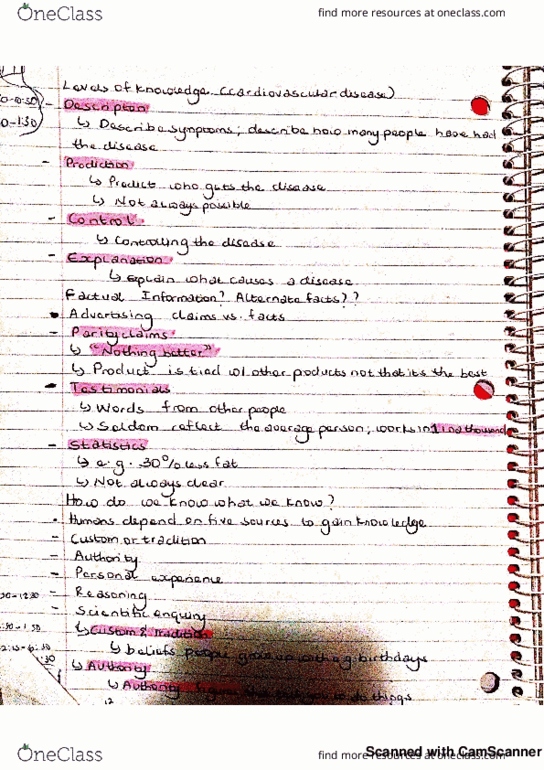 OneClass
find more resources at oneclass.com
Levels of knowledge (cardiovascular disease)
- Description
↳ Describe symptoms; describe how many people have had
the disease
- Prediction
↳ Predict who gets the disease
↳ Not always possible
- Control
↳ Controlling the disease
- Explanation
↳ Explain what causes a disease
Factual Information? Alternate facts??
• Advertising claims vs. facts
- Parity claims
↳ "Nothing better"
↳ Product is tied w/ other products not that it's the best
- Testimonials
↳ Words from other people
↳ Seldom reflect the average person; works in 1 in a thousand
- Statistics
↳ e.g. 30% less fat
↳ Not always clear
How do we know what we know?
• Humans depend on five sources to gain knowledge
- Custom or tradition
- Authority
- Personal experience
- Reasoning
- Scientific enquiry
↳ Custom & Tradition
↳ beliefs people grow up with e.g. birthdays
↳ Authority
↳ Authority to do things
OneClass
find more resources at oneclass.com
Scanned with CamScanner